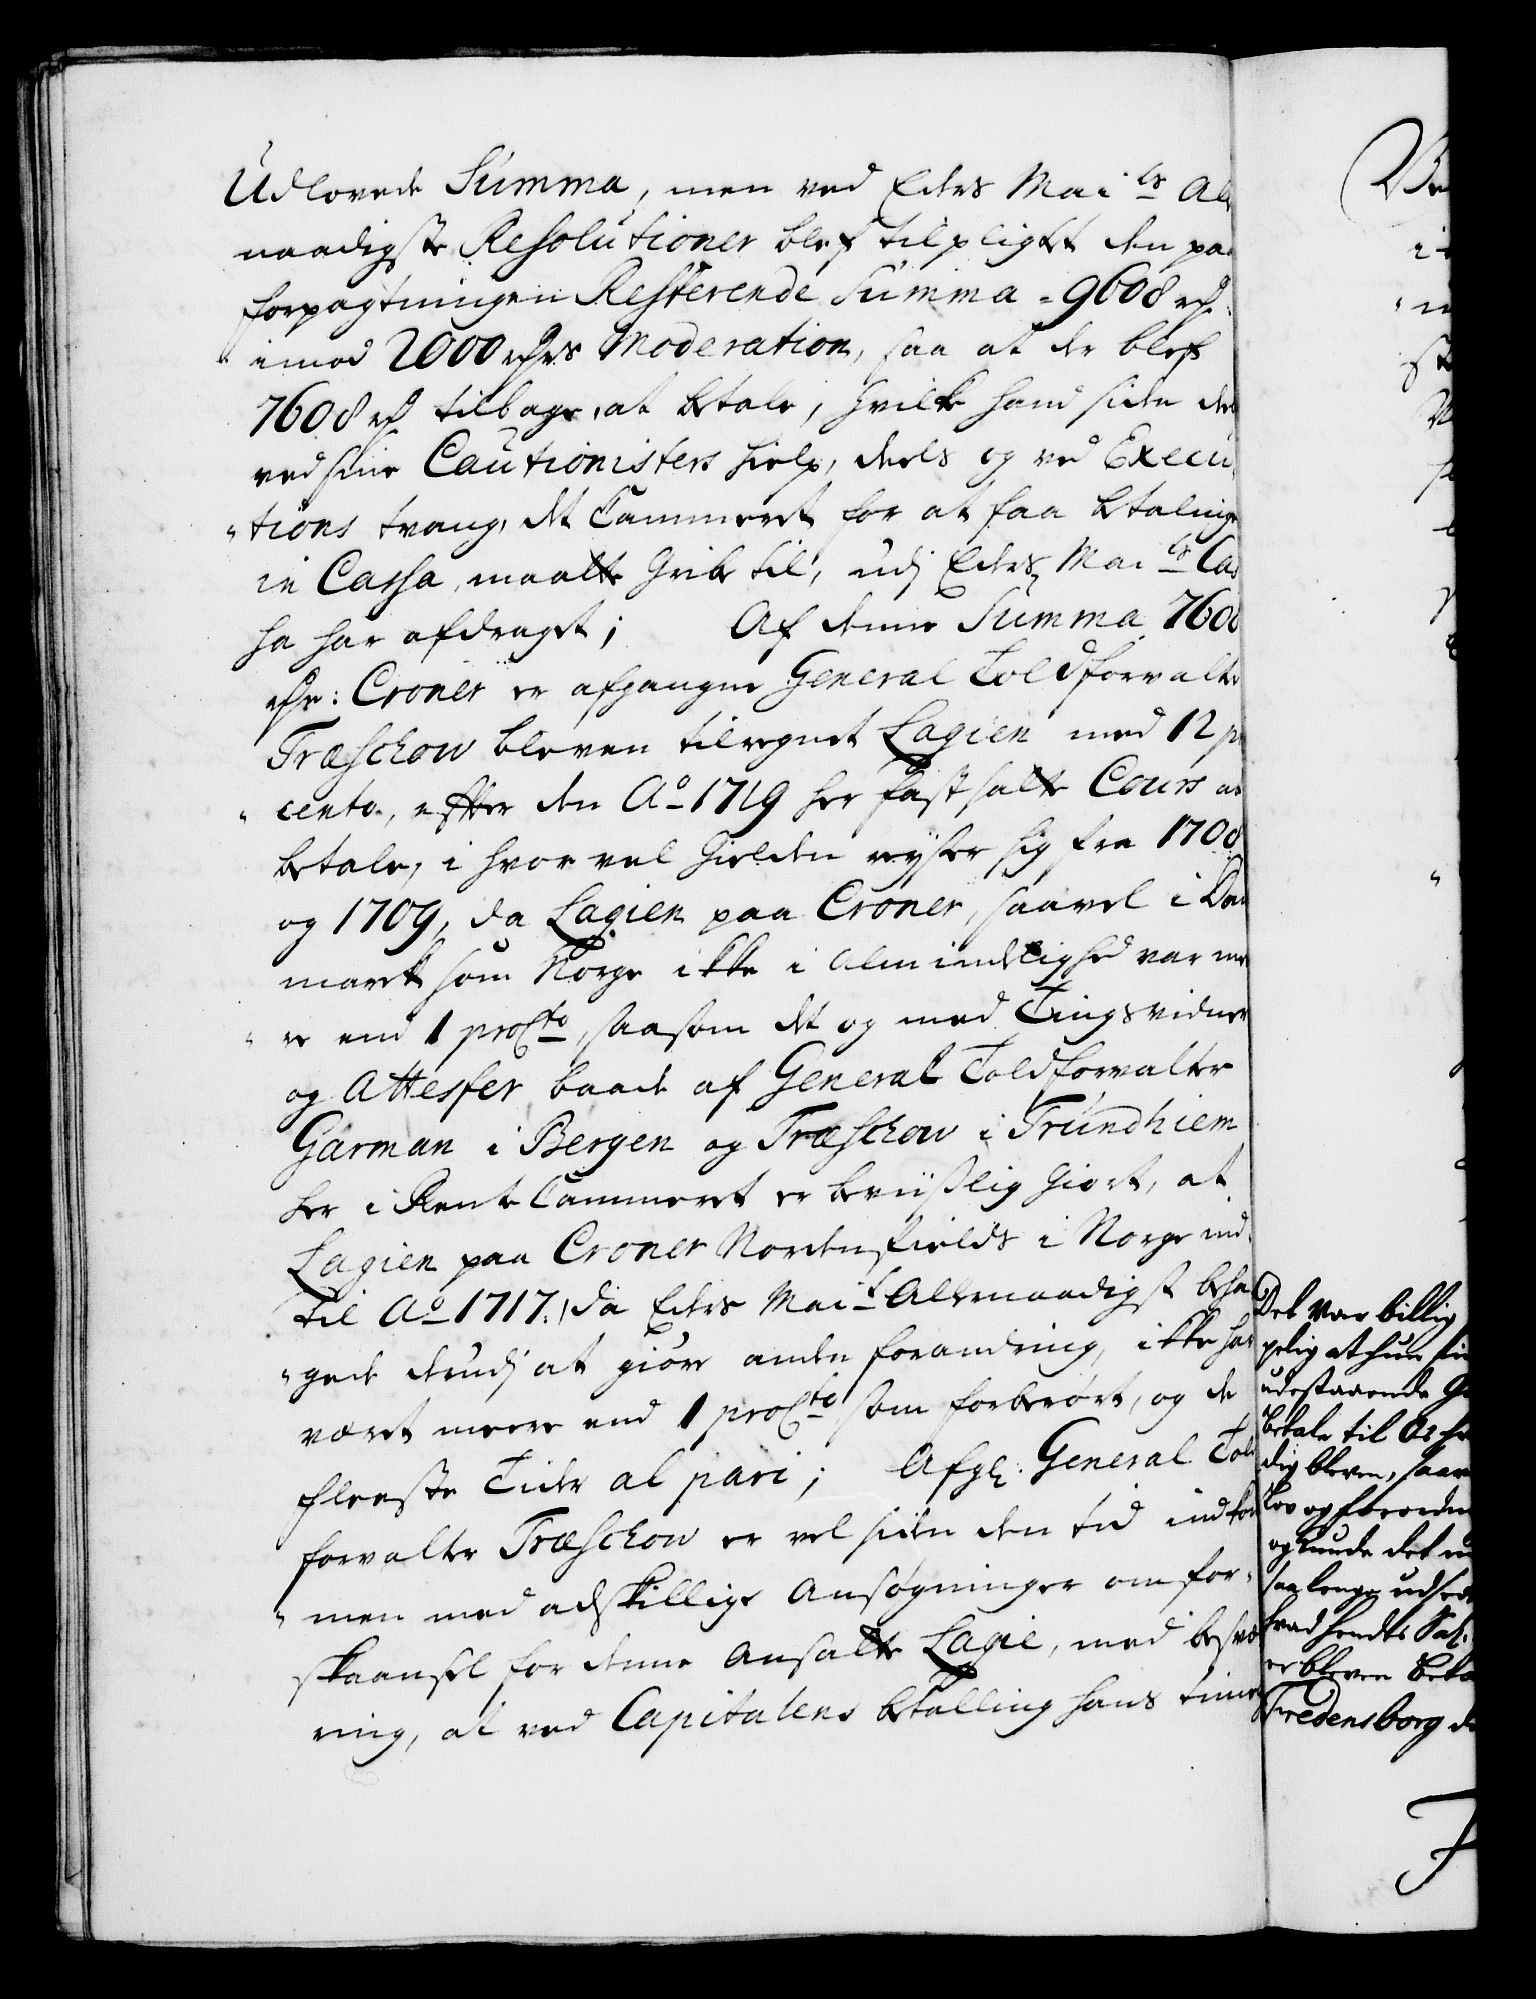 Udlovede Summa, men ved Eders Mai ts Al
naadigste Resolutioner blef tilpligtet den paa
forpagtningen Resterende Summa = 9608 rd.
imod 2000 rdrs Moderation, saa at der blef
7608 rd tilbage, at betale, hvilke hand siden deels
ved sine Cautionisters hielp, deels og ved Execu-
"tions tvang, det Cammeret for at faa betaling
in Cassa, maatte Gribe til, udj Eders Mai ts Cas
sa har afdraget; Af denne Summa 7608
rdr: Croner er afgangne General Toldforvalter
Træschow bleven tilregnet Lagien med 12 pr
" cento, efter den Ao 1719 her fastsatte Cours at
betale, i hvor vel Gielden reyser sig fra 1708
og 1709, da Lagien paa Croner, saavel i Dan
mark som Norge ikke i Almindelighed var mee
" re end 1 proCto, saasom det og med Tingsvidner
og Attester baade af General Toldforvalter
Garman i Bergen og Træschow i Trundhiem
her i Rente Cammeret er beviislig Giort, at
Lagien paa Croner Nordenfields i Norge ind-
til Ao 1717, da Eders Mait Allernaadigst beha
"gede derudj at giøre anden forandring, ikke har
været meere end 1 proCto som forberørt, og de
fleeste Tider al pari; Afg: General Told
forvalter Træschow er vel siden den tid indkom
"men med adskillige Ansøgninger om for-
skaansel for denne Ansatte Lagie, med besvæ
ring, at ved Capitalens betalling hans
Det Var billig
at hun
udestaaende
betale til
bleven, saa
Lov og forordn
og kunde det
saa lenge
hvad hendes Sal.
er bleven
Fredensborg d